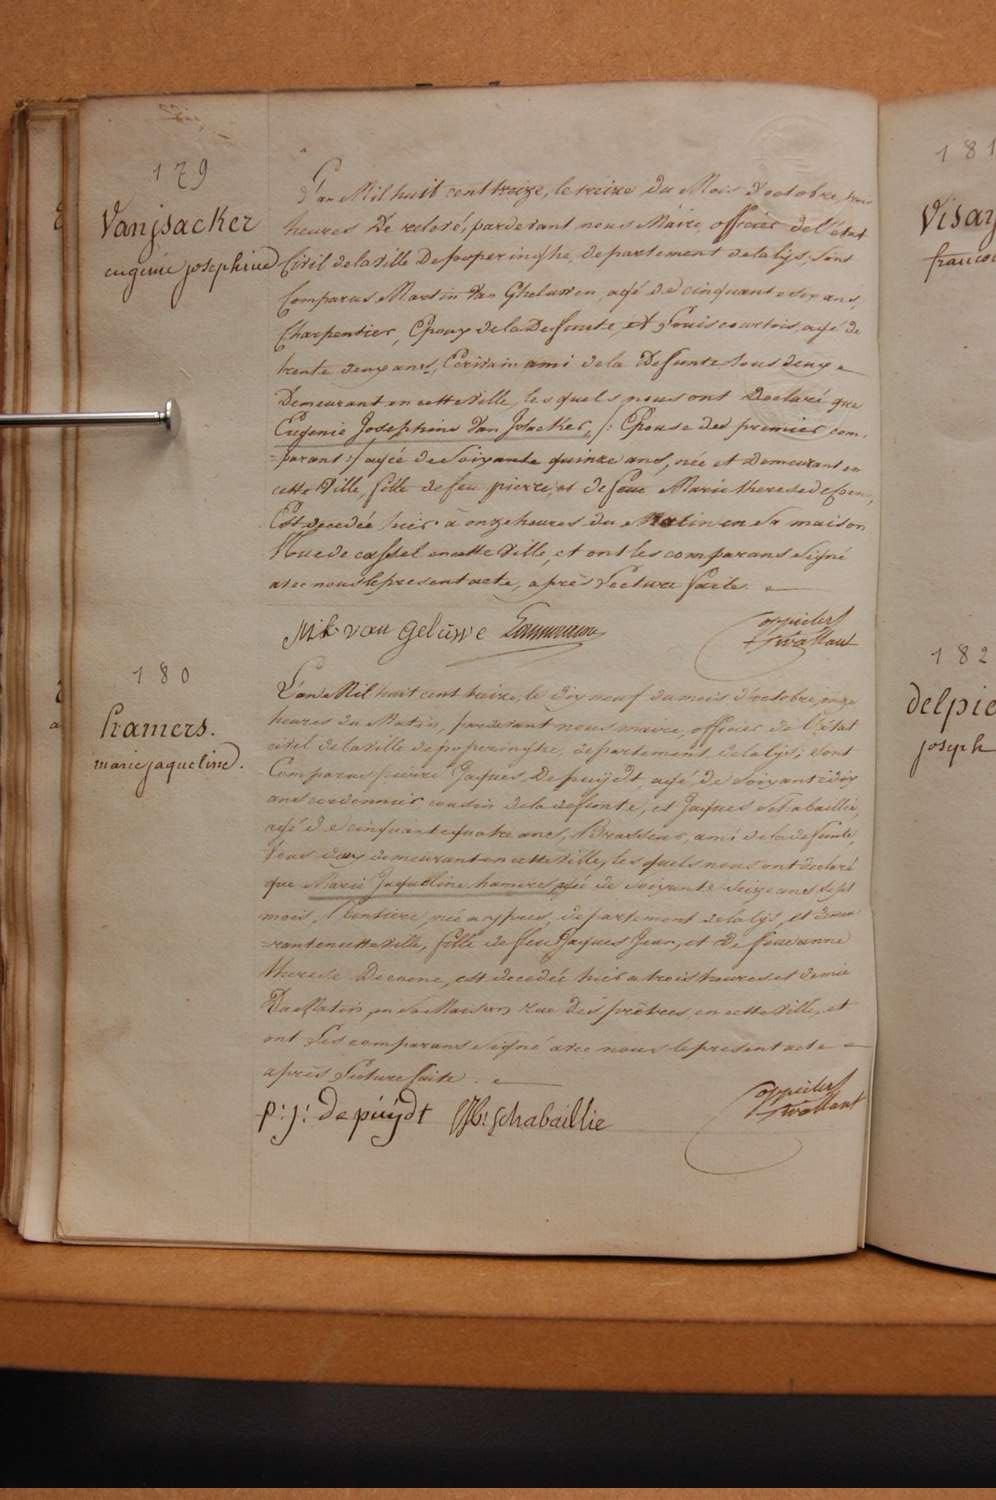 179
Vanjsacker
eugenie josephine
L'an Mil huit cent treize, le treize du Mois d'octobre, trois
heures De relevé, pardevant nous Maire, officier de l'état
Civil de la ville De pooperinghe, departement de la lijs, sont
Comparus Martin Van Gheluwen, agé de cinquante six ans,
Charpentier, Epoux de la Defunte, et Louis courtois, agé de
trente deux ans, Ecrivain ami de la Defunte tous deux
Demeurant en cette ville, lesquels nous ont Declaré que
Eugenie Josephine Van Jsacker, /: Epouse des premier com-
=parant :/ agée de Soixante quinze ans, née et Demeurant en
cette Ville, fille de feu pierre, et de feue Marie therese
Est decedée hier à onze heures du Matin en sa maison
Rue de cassel en cette Ville, et ont les comparans signé
avec nous le present acte, après Lecture faite.
van geluwe
180
hamers.
marie jaqueline.
L'an Mil huit cent treize, le dix neuf du mois d'octobre, onze
heures du Matin, pardevant nous maire, officier de l'état
civil de la ville de poperinghe, departement de la lijs; sont
Comparus pierre Jaques Depuijdt, agé de soixante dix
ans cordonnier cousin de la defunte, et Jaques Schabaillie,
agé de cinquante quatre ans, Brasseur, ami de la defunte,
tous deux demeurant en cette ville, les quels nous ont declaré
que Marie Jaqueline hamers agée de soixante seize ans sept
mois, Rentiere, née a ypres, departement de la lijs, et demeu-
=rant en cette ville, fille de feu Jaques Jean, et de feue anne
therese Decoene, est decedée hier a trois heures et demie
Du Matin, en sa Maison rue des prêtres, en cette Ville, et
ont Les comparans signé avec nous le present acte
après Lecture faite.
p: j: depuijdt Schabaillie
181
182